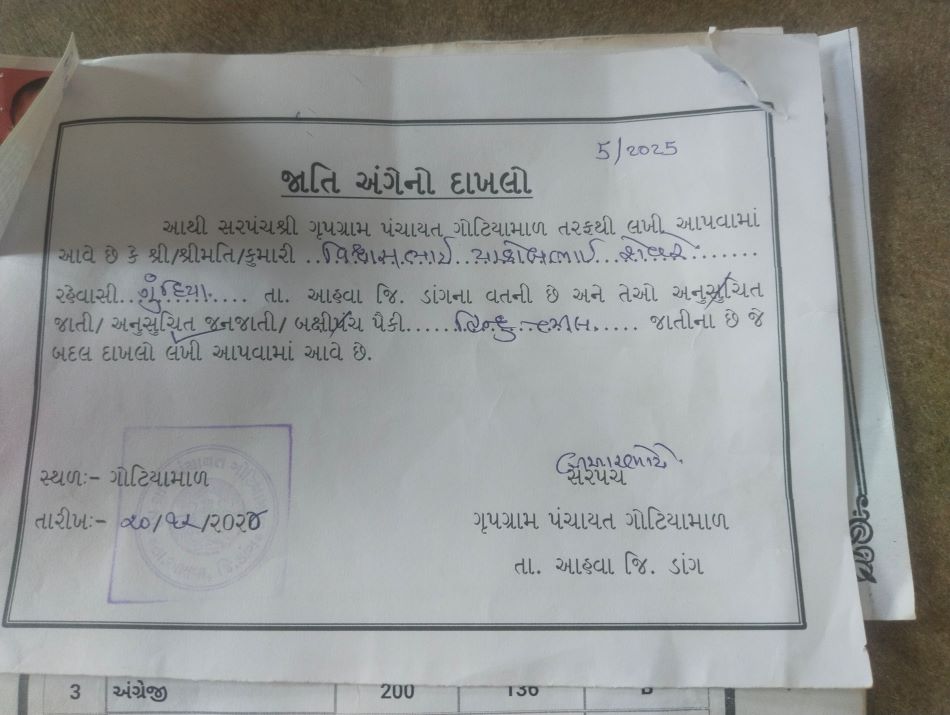 5/2025
જાતિ અંગેનો દાખલો
આથી સરપંચશ્રી ગૃપગ્રામ પંચાયત ગોટિયામાળ તરફથી લખી આપવામાં
આવે છે કે શ્રી/શ્રીમતિ/કુમારી ..
રહેવાસી.......... તા. આહવા જિ. ડાંગના વતની છે અને તેઓ અનુસુચિત
જાતી/ અનુસુચિત જનજાતી/ બક્ષીપંચ પૈકી.....હિન્દુ..... જાતીના છે જે
બદલ દાખલો લખી આપવામાં આવે છે.
સ્થળઃ- ગોટિયામાળ
તારીખઃ- ૨૦/૧૨/૨૦૨૪
સરપંચ
ગૃપગ્રામ પંચાયત ગોટિયામાળ
તા. આહવા જિ. ડાંગ
3 અંગ્રેજી 200 136 B